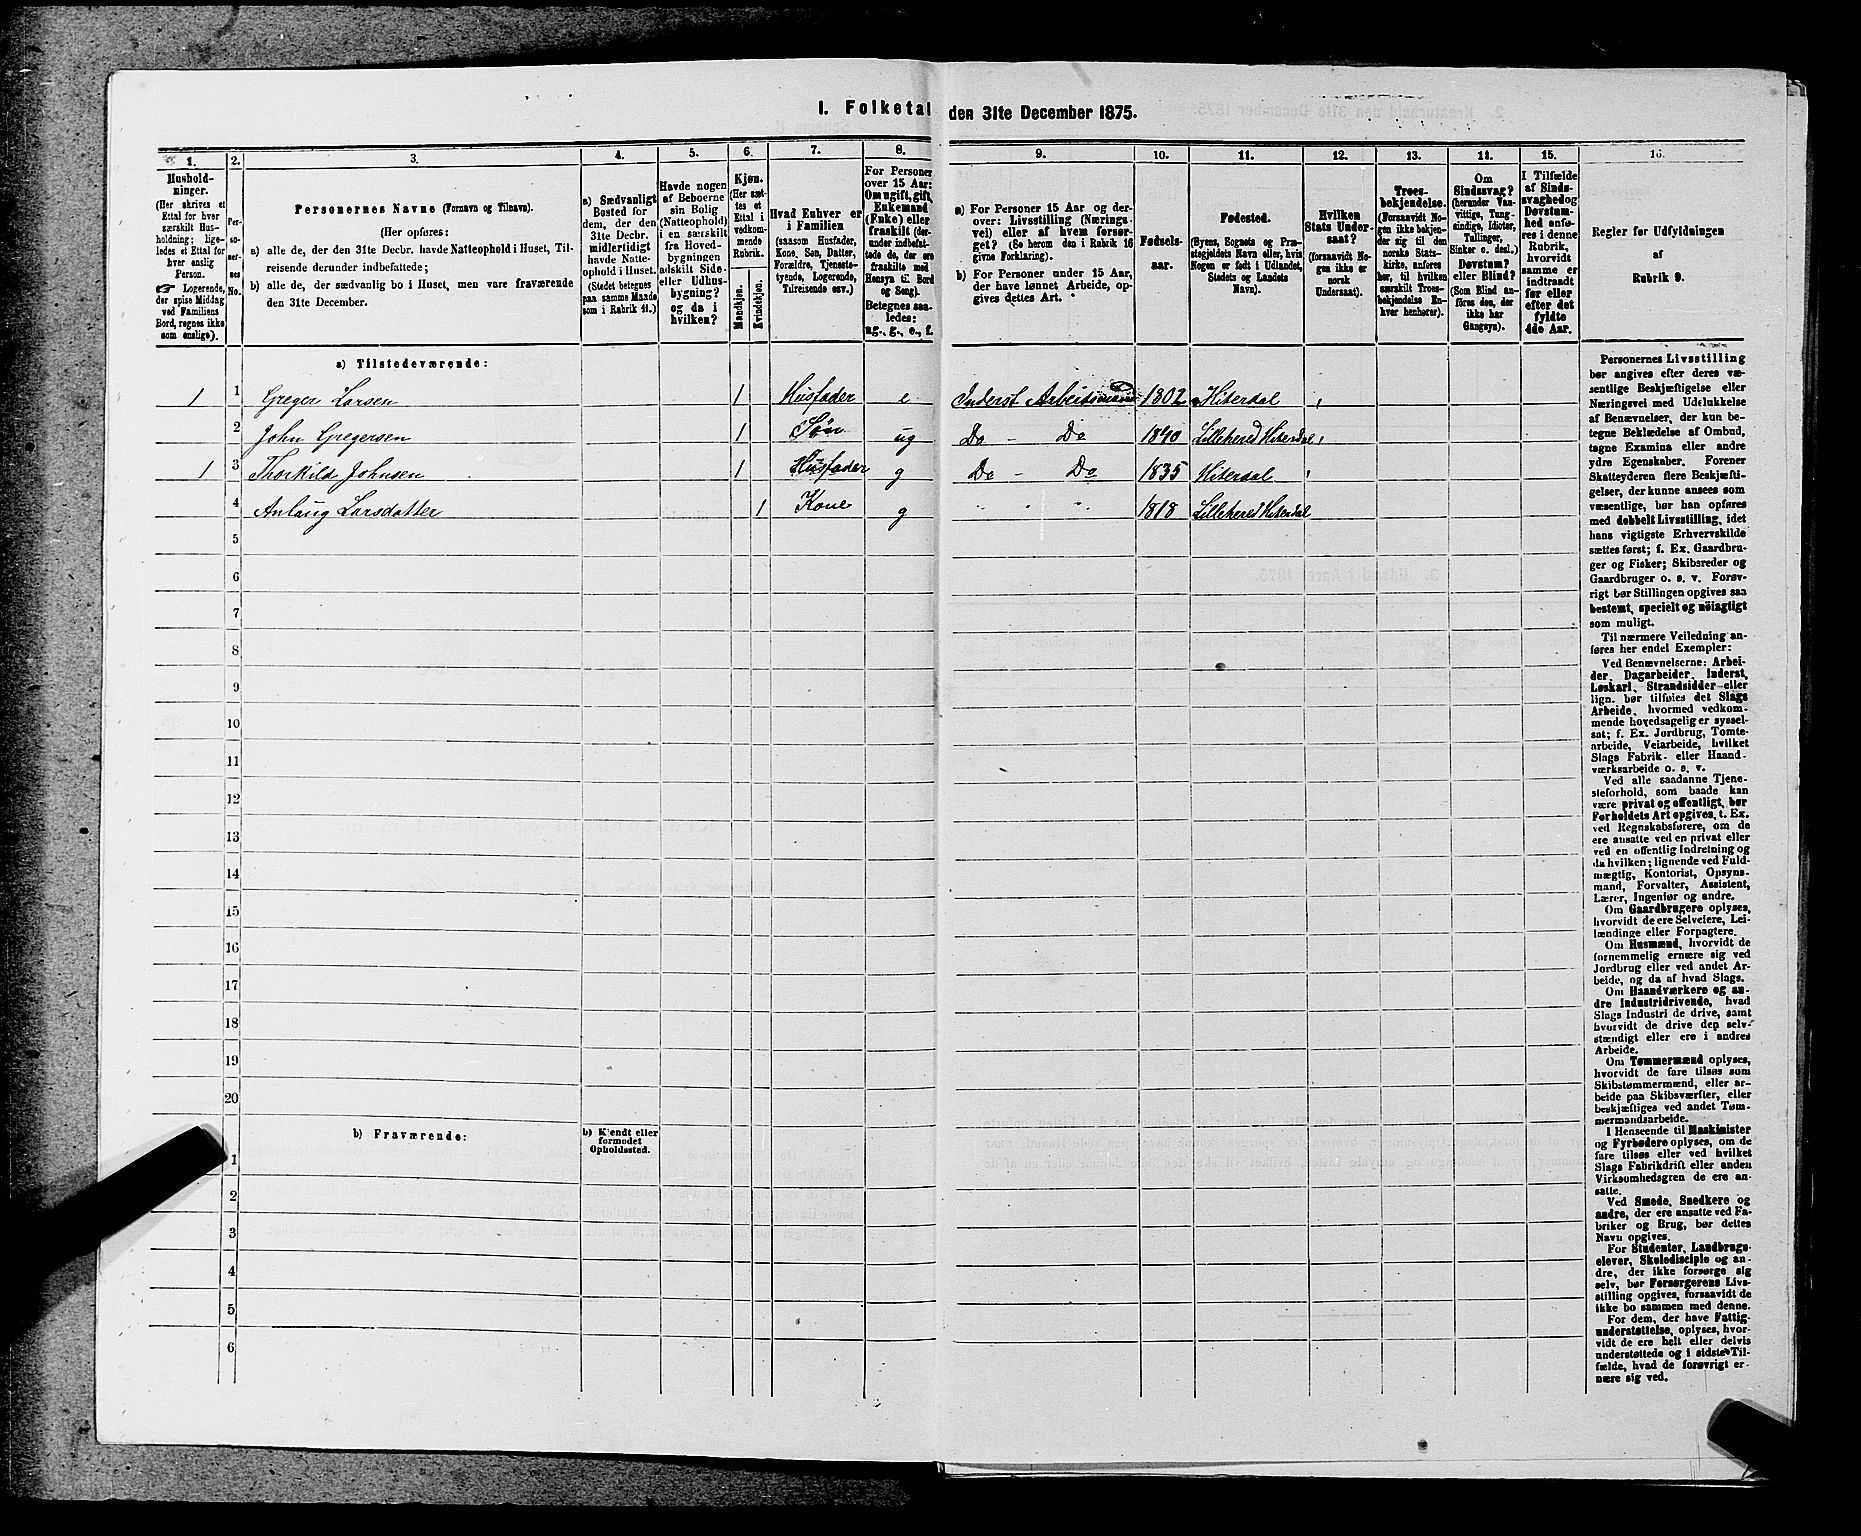 I. Folketal den 31te December 1875.
1.
2.
3.
4.
5.
6.
7.
8.
9.
10.
11.
12.
13.
14.
15.
16.
Hushold-
ninger.
(Her skrives et
Ettal for hver
særskilt Hus-
holdning; lige-
ledes et Ettal for
hver enslig
Person.
☞ Logerende,
der spise Middag
ved Familiens
Bord, regnes ikke
som enslige).
Per-
so-
ner-
nes
No.
Personernes Navne (Fornavn og Tilnavn).
(Her opføres:
a) alle de, der den 31te Decbr. havde Natteophold i Huset, Til-
reisende derunder indbefattede;
b) alle de, der sædvanlig bo i Huset, men vare fraværende
den 31te December.
a) Sædvanligt
Bosted for
dem, der den
31te Decbr.
midlertidigt
havde Natte-
ophold i Huset.
(Stedet betegnes
paa samme Maade
som i Rubrik 11.)
Havde nogen
af Beboerne
sin Bolig
(Natteophold)
i en særskilt
fra Hoved-
bygningen
adskilt Side-
eller Udhus-
bygning?
og da i
hvilken?
Kjøn.
(Her sæt-
tes et
Ettal i
vedkom-
mende
Rubrik.
Mandkjøn.
Kvindekjøn.
Hvad Enhver er
i Familien
(saasom Husfader,
Kone, Søn, Datter,
Forældre, Tjeneste-
tyende, Logerende,
Tilreisende osv.)
For Personer
over 15 Aar:
Om ugift, gift,
Enkemand
(Enke) eller
fraskilt (der-
under indbefat-
tede de, der ere
fraskilte med
Hensyn til Bord
og Seng).
Betegnes saa-
ledes:
ug., g., e., f.
a) For Personer 15 Aar og der-
over: Livsstilling (Nærings-
vei) eller af hvem forsør-
get? (Se herom den i Rubrik 16
givne Forklaring).
b) For Personer under 15 Aar,
der have lønnet Arbeide, op-
gives dettes Art.
Fødsels-
aar.
Fødested.
(Byens, Sognets og Præ-
stegjeldets Navn eller, hvis
Nogen er født i Udlandet,
Stedets og Landets
Navn).
Hvilken
Stats Under-
saat?
(forsaavidt No-
gen ikke er
norsk
Undersaat).
Troes-
bekjendelse.
(Forsaavidt No-
gen ikke bekjen-
der sig til den
norske Stats-
kirke, anføres
her, til hvilken
særskilt Troes-
bekjendelse En-
hver henhører).
Om
Sindssvag?
(herunder Van-
vittige, Tung-
sindige, Idioter,
Tullinger,
Sinker o. desl.)
Døvstum?
eller Blind?
(Som Blind an-
føres den, der
ikke har
Gangsyn).
I Tilfælde
af Sinds-
svaghed og
Døvstum-
hed anfø-
res i denne
Rubrik,
hvorvidt
samme er
indtraadt
før eller
efter det
fyldte
4de Aar.
Regler for Udfyldningen
af
Rubrik 9.
a) Tilstedeværende:
1 1 Greger Larsen 1 Husfader e Inderst Arbeidsmand 1802 Hiterdal
2 John Gregersen 1 Søn ug Do – Do 1840 Lilleherred Hiterdal
1 3 Thorkild Johnsen 1 Husfader g Do – Do 1835 Hiterdal
4 Anlaug Larsdatter 1 Kone g " " " 1818 Lilleherred Hiterdal
5
6
7
8
9
10
11
12
13
14
15
16
17
18
19
20
b) Fraværende:
b) Kjendt eller
formodet
Opholdssted.
1
2
3
4
5
6
Personernes Livsstilling
bør angives efter deres væ-
sentlige Beskjæftigelse eller
Næringsvei med Udelukkelse
af Benævnelser, der kun be-
tegne Beklædelse af Ombud,
tagne Examina eller andre
ydre Egenskaber. Forener
Skatteyderen flere Beskjæfti-
gelser, der kunne ansees som
væsentlige, bør han opføres
med dobbelt Livsstilling, idet
hans vigtigste Erhvervskilde
sættes først; f. Ex. Gaardbru-
ger og Fisker; Skibsreder og
Gaardbruger o. s. v. Forøv-
rigt bør Stillingen opgives saa
bestemt, specielt og nöiagtigt
som muligt.
Til nærmere Veiledning an-
føres her endel Exempler:
Ved Benævnelserne: Arbei-
der, Dagarbeider, Inderst,
Løskarl, Strandsidder eller
lign. bør tilføies det Slags
Arbeide, hvormed vedkom-
mende hovedsagelig er syssel-
sat; f. Ex. Jordbrug, Tomte-
arbeide, Veiarbeide, hvilket
Slags Fabrik- eller Haand-
værksarbeide o. s. v.
Ved alle saadanne Tjene-
steforhold, som baade kan
være privat og offentligt, bør
Forholdets Art opgives, t. Ex.
ved Regnskabsførere, om de
ere ansatte ved en privat eller
ved en offentlig Indretning og
da hvilken; lignende ved Fuld-
mægtig, Kontorist, Opsyns-
mand, Forvalter, Assistent,
Lærer, Ingeniør og andre.
Om Gaardbrugere oplyses,
hvorvidt de ere Selveiere, Lei-
lændinge eller Forpagtere.
Om Husmænd, hvorvidt de
fornemmelig ernære sig ved
Jordbrug eller ved andet Ar-
beide, og da af hvad Slags.
Om Haandværkere og an-
dre Industridrivende, hvad
Slags Industri de drive, samt
hvorvidt de drive den selv-
stændigt eller ere i andres
Arbeide.
Om Tømmermænd oplyses,
hvorvidt de fare tilsøs som
Skibstømmermænd, eller ar-
beide paa Skibsværfter, eller
beskjæftiges ved andet Tøm-
mermandsarbeide.
I Henseende til Maskinister
og Fyrbødere oplyses, om de
fare tilsøs eller ved hvilket
Slags Fabrikdrift eller anden
Virksomhedsgren de ere an-
satte.
Ved Smede, Snedkere og
andre, der ere ansatte ved Fa-
briker og Brug, bør dettes
Navn opgives.
For Studenter, Landbrugs-
elever, Skoledisciple og an-
dre, der ikke forsørge sig
selv, bør Forsørgerens Livs-
stilling opgives, forsaavidt de
ikke bo sammen med denne.
For dem, der have Fattig-
understøttelse, oplyses, hvor-
vidt de ere helt eller delvis
understøttede og i sidste Til-
fælde, hvad de forøvrigt er-
nære sig ved.